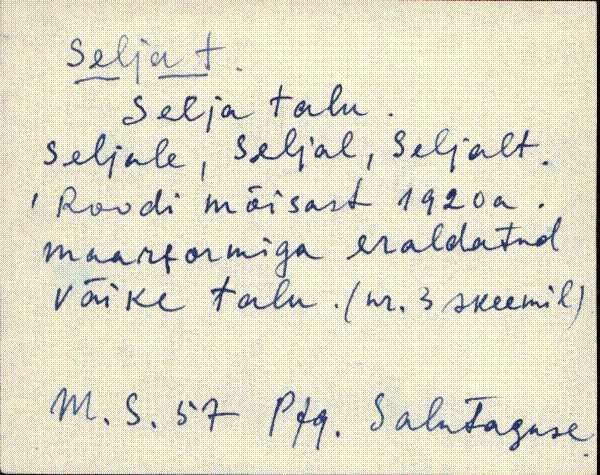 Selja t.
Selja talu.
Seljale, Seljal, Seljalt.
'Roodi mõisast 1920a.
maarformiga eraldatud
väike talu. (nr. 3 skeemil)
M. S. 57 Salutaguse.